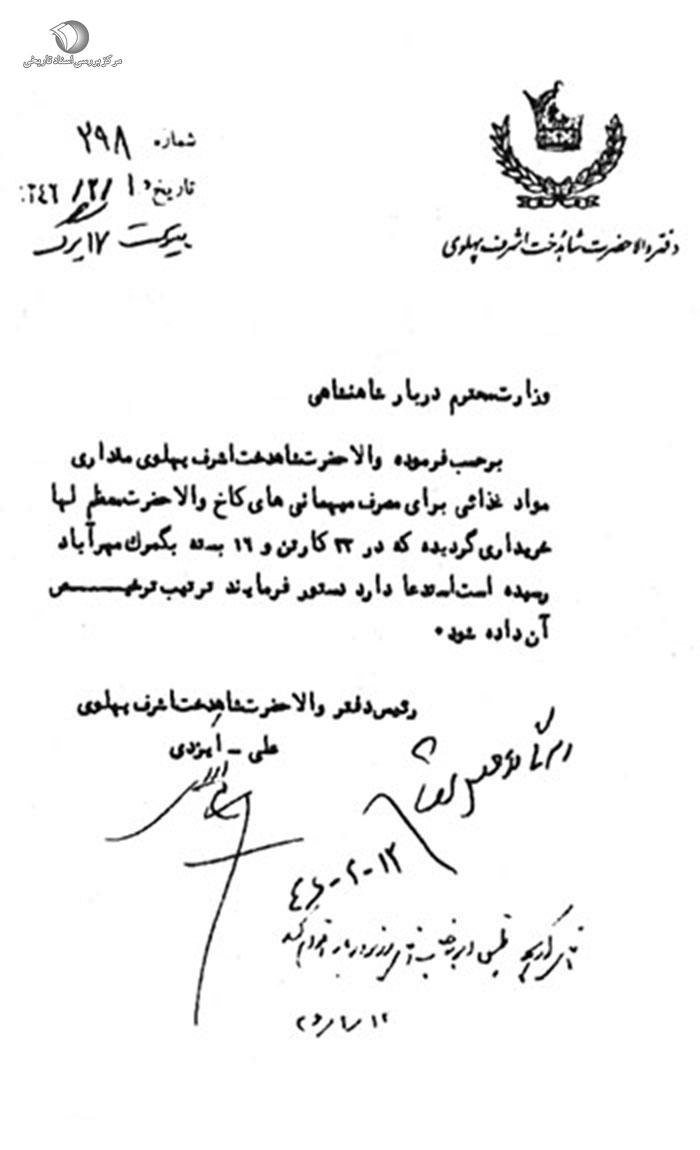 مرکز بررسی اسناد تاریخی
دفتر والاحضرت شاهدخت اشرف پهلوی
شماره ۲۹۸
تاریخ ۱۳۴۶/۲/
پیوست ۱۷ برگ
وزارت محترم دربار شاهنشاهی
برحسب فرموده والاحضرت شاهدخت اشرف پهلوی مقداری
مواد غذائی برای مصرف میهمانی های کاخ والاحضرت معظم لها
خریداری گردیده که در ۳۳ کارتن و ۱۶ بسته بگمرک مهرآباد
رسیده است استدعا دارد دستور فرمایند ترتیب ترخیص
آن داده شود ۰
رئیس دفتر والاحضرت شاهدخت اشرف پهلوی
علی - ایزدی
۴۶-۲-۱۲
وزیر دربار اقدام کنید